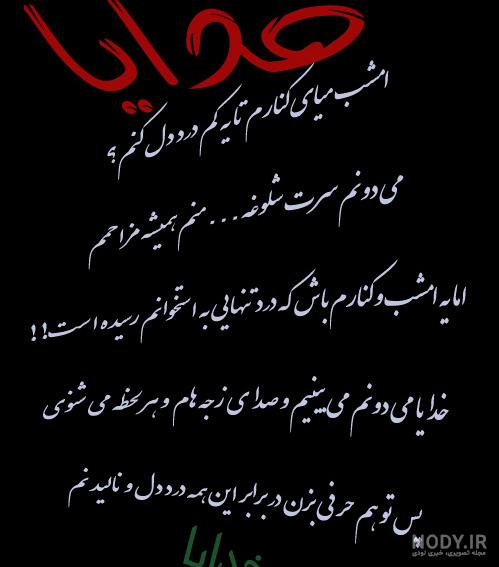 هدایا
امشب میای کنارم تا یه کم درد دل کنم ؟
می دونم سرت شلوغه ... منم همیشه مزاحمم
اما یه امشب و کنارم باش که درد تنهایی به استخوانم رسیده است!!
خدایا می دونم می بینیم و صدای زجه هام و هر لحظه می شنوی
پس تو هم حرفی بزن در برابر این همه درد دل و نالیدنم
خدایا
NODY.IR
مجله تصویری، خبری نودی